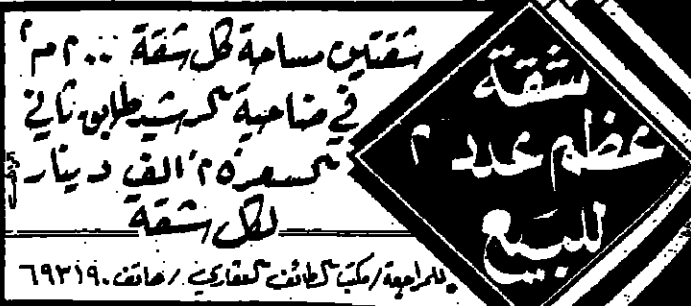 شقة
عظم عدد ٢
للبيع
شقتين مساحة كل شقة ٢٠٠م٢
في ضاحية الرشيد طابق ثاني
السعر ٢٥ الف دينار
لكل شقة
للمراجعة/مكتب الطائف العقاري/هاتف ٦٩٣١٩٠